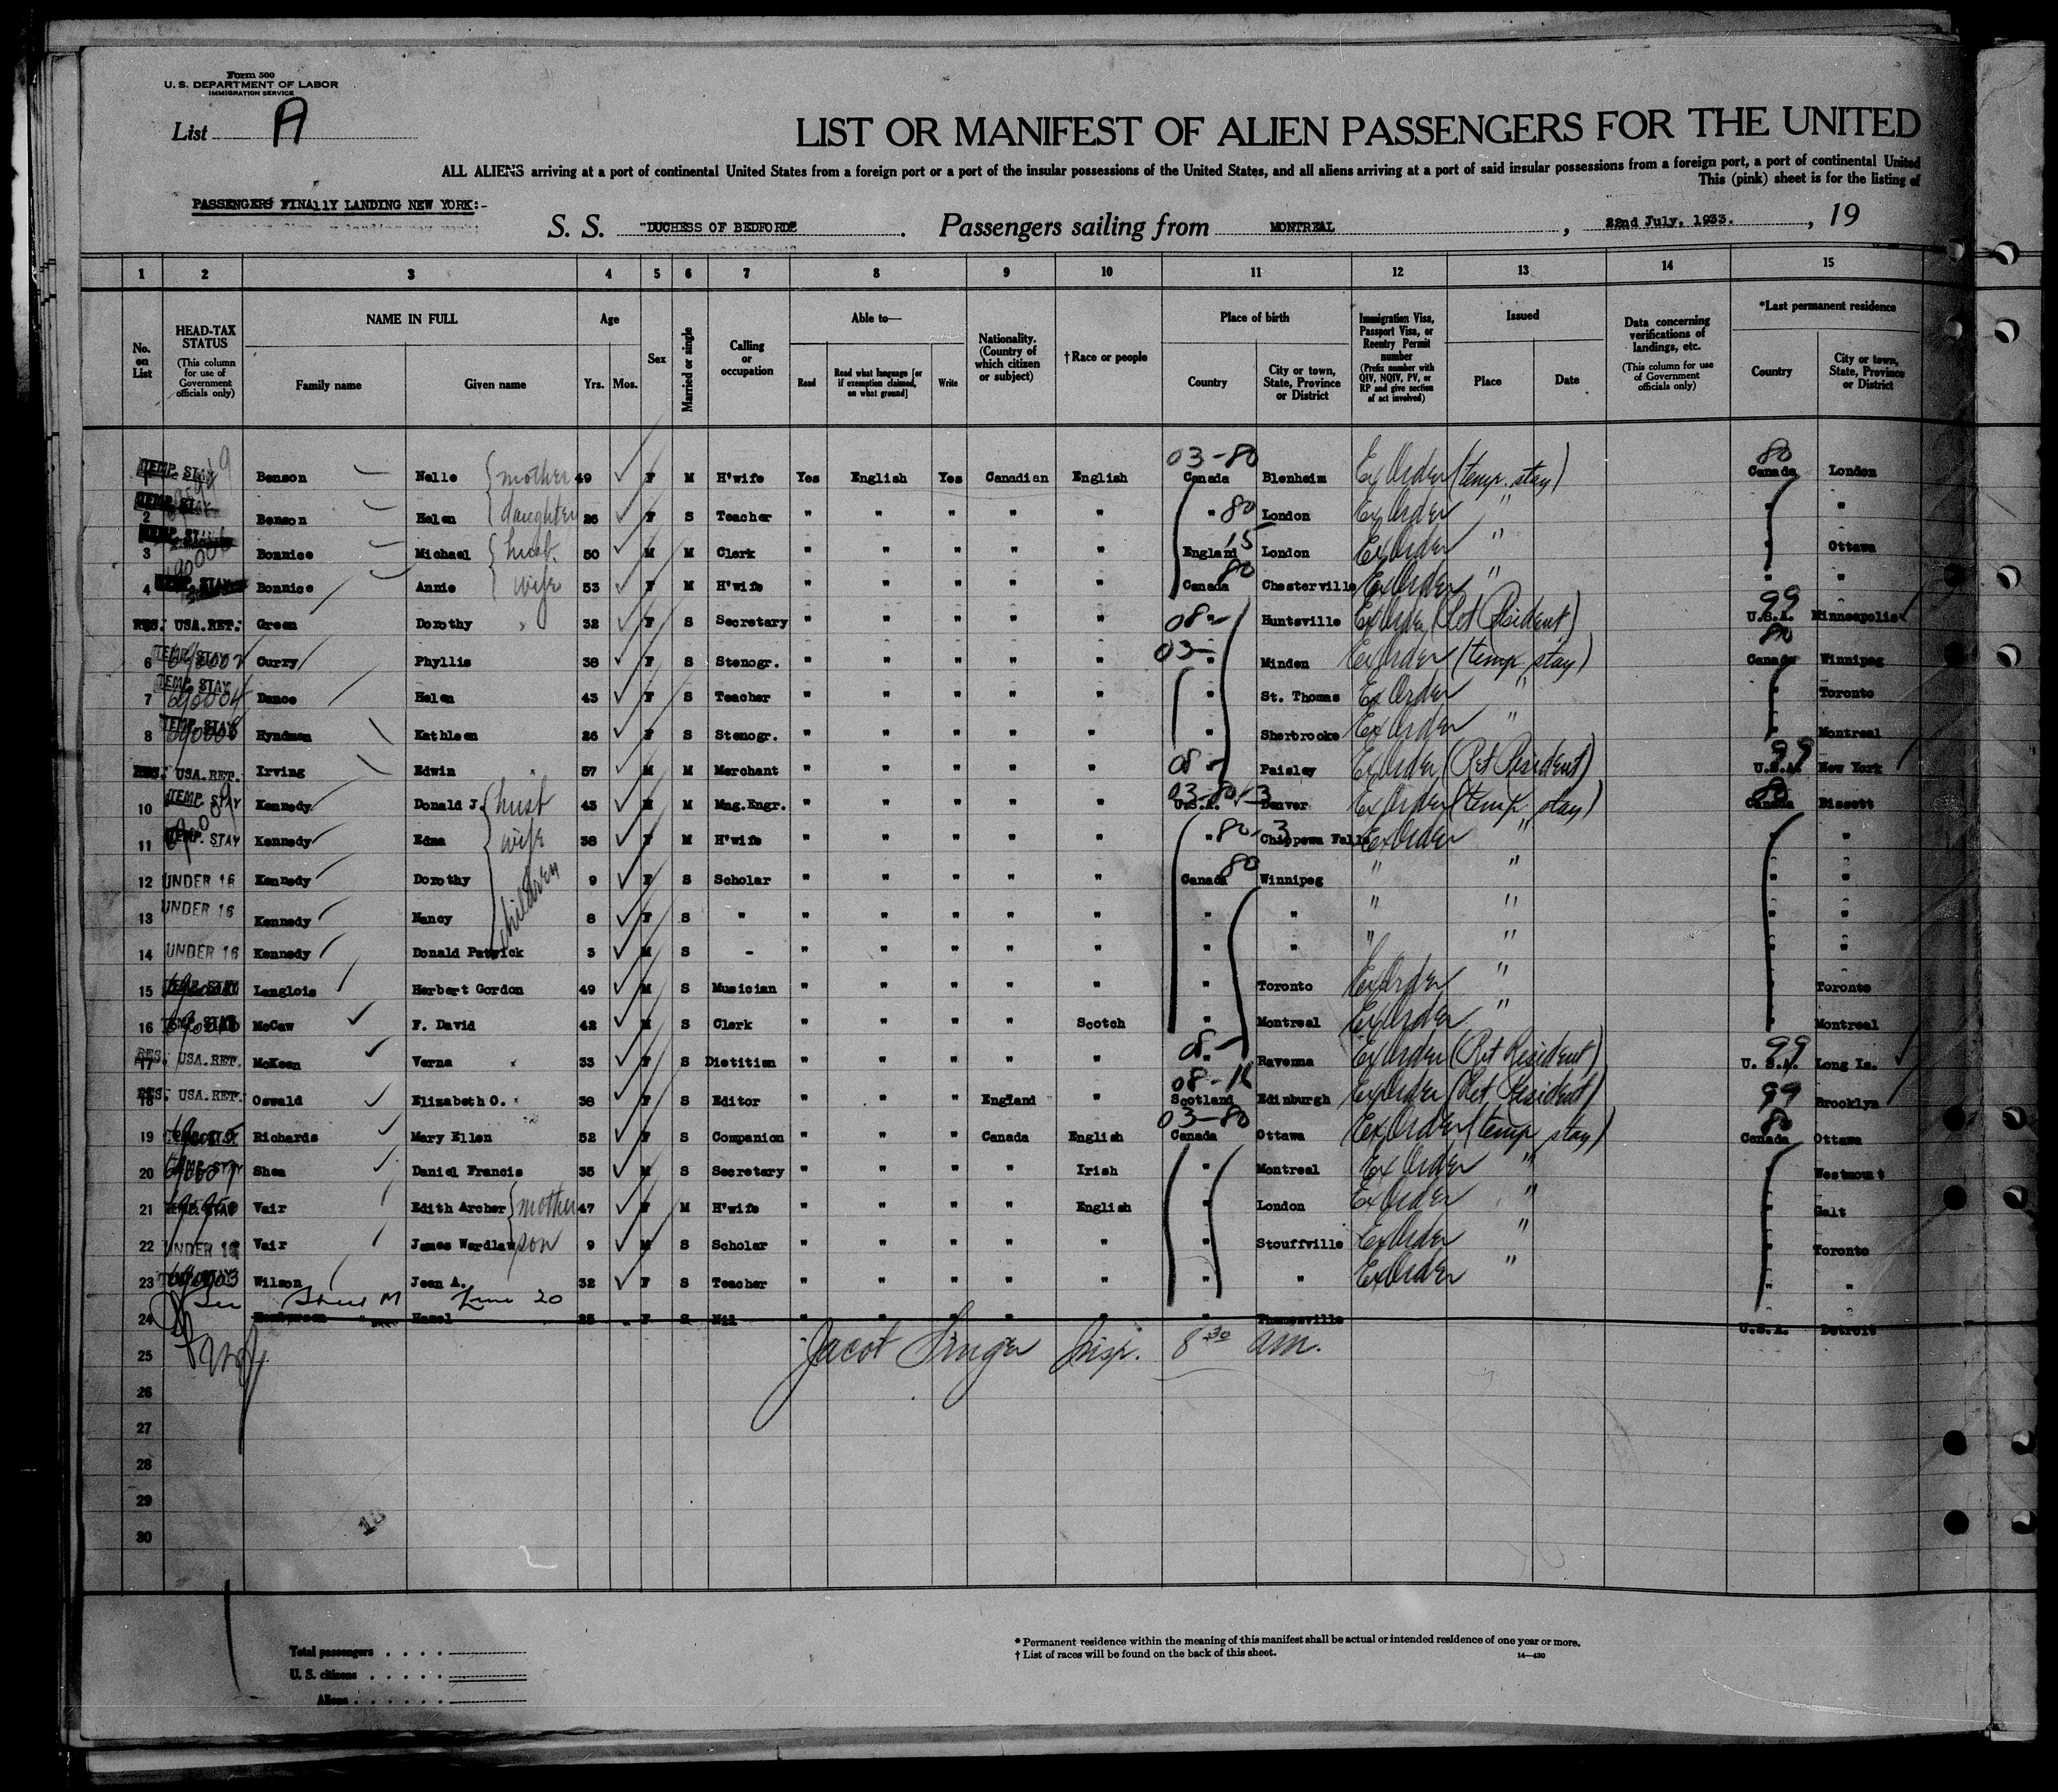 Form 500
U. S. DEPARTMENT OF LABOR
IMMIGRATION SERVICE
List A
LIST OR MANIFEST OF ALIEN PASSENGERS FOR THE UNITED
ALL ALIENS arriving at a port of continental United States from a foreign port or a port of the insular possessions of the United States, and all aliens arriving at a port of said insular possessions from a foreign port, a port of continental United
This (pink) sheet is for the listing of
PASSENGERS FINALLY LANDING NEW YORK:-
S. S. "DUCHESS OF BEDFORD". Passengers sailing from MONTREAL, 22nd July, 1933., 19
1 2 3 4 5 6 7 8 9 10 11 12 13 14 15
No. on List
HEAD-TAX STATUS (This column for use of Government officials only)
NAME IN FULL Family name Given name
Age Yrs. Mos.
Sex
Married or single
Calling or occupation
Able to— Read Read what language [or if exemption claimed, on what ground] Write
Nationality. (Country of which citizen or subject)
†Race or people
Place of birth Country City or town, State, Province or District
Immigration Visa, Passport Visa, or Reentry Permit number (Prefix number with QIV, NQIV, PV, or RP and give section of act involved)
Issued Place Date
Data concerning verifications of landings, etc. (This column for use of Government officials only)
*Last permanent residence Country City or town, State, Province or District
TEMP. STAY Benson Nelle mother 49 F M H'wife Yes English Yes Canadian English 03-80 Canada Blenheim Ex Order (temp. stay) 80 Canada London
2 TEMP. STAY Benson Helen daughter 26 F S Teacher " " " " " " 80 London Ex Order " " "
3 Bonnice Michael husb. 50 M M Clerk " " " " " England 15 London Ex Order " " Ottawa
4 TEMP. STAY Bonnice Annie wife 53 F M H'wife " " " " " Canada 80 Chesterville Ex Order " " "
RES. USA. RET. Green Dorothy 32 F S Secretary " " " " " 08- Huntsville Ex Order (Ret Resident) 99 U.S.A. Minneapolis
6 TEMP. STAY Curry Phyllis 38 F S Stenogr. " " " " " 03- " Minden Ex Order (temp stay) 80 Canada Winnipeg
7 TEMP. STAY 690004 Dance Helen 43 F S Teacher " " " " " " St. Thomas Ex Order " " Toronto
8 TEMP. STAY Hyndman Kathleen 26 F S Stenogr. " " " " " " Sherbrooke Ex Order " " Montreal
RES. USA. RET. Irving Edwin 57 M M Merchant " " " " " 08- " Paisley Ex Order (Ret Resident) 99 U.S.A. New York
10 TEMP. STAY Kennedy Donald J. husb 43 M M Mng.Engr. " " " " " 03-80-3 U.S.A. Denver Ex Order (temp stay) 80 Canada Bissett
11 TEMP. STAY Kennedy Edna wife 38 F M H'wife " " " " " " 80-3 Chippewa Falls Ex Order " " "
12 UNDER 16 Kennedy Dorothy children 9 F S Scholar " " " " " Canada 80 Winnipeg " " " "
13 UNDER 16 Kennedy Nancy 8 F S " " " " " " " " " " " "
14 UNDER 16 Kennedy Donald Patrick 3 M S - " " " " " " " " " " "
15 TEMP. STAY Langlois Herbert Gordon 49 M S Musician " " " " " " Toronto Ex Order " " Toronto
16 TEMP. STAY McCaw F. David 42 M S Clerk " " " " Scotch " Montreal Ex Order " " Montreal
17 RES. USA. RET. McKeen Verna 33 F S Dietitian " " " " " 08- " Ravenna Ex Order (Ret Resident) 99 U. S.A. Long Is.
18 RES. USA. RET. Oswald Elizabeth O. 36 F S Editor " " " England " 08-16 Scotland Edinburgh Ex Order (Ret Resident) 99 Brooklyn
19 Richards Mary Ellen 52 F S Companion " " " Canada English 03-80 Canada Ottawa Ex Order (temp stay) 80 Canada Ottawa
20 TEMP. STAY Shea Daniel Francis 35 M S Secretary " " " " Irish " Montreal Ex Order " " Westmount
21 TEMP. STAY Vair Edith Archer mother 47 F M H'wife " " " " English " London Ex Order " " Galt
22 UNDER 16 Vair James Wardlaw son 9 M S Scholar " " " " " " Stouffville Ex Order " " Toronto
23 Wilson Jean A. 32 F S Teacher " " " " " " " Ex Order " " "
See Sheet M Line 20
24 Henderson Hazel 25 F S Nil " " " " " " Thamesville U.S.A. Detroit
25 Jacob Singer Insp. 8 30 am.
26
27
28
29
30
18
Total passengers
U. S. citizens
Aliens
* Permanent residence within the meaning of this manifest shall be actual or intended residence of one year or more.
† List of races will be found on the back of this sheet.
14—430